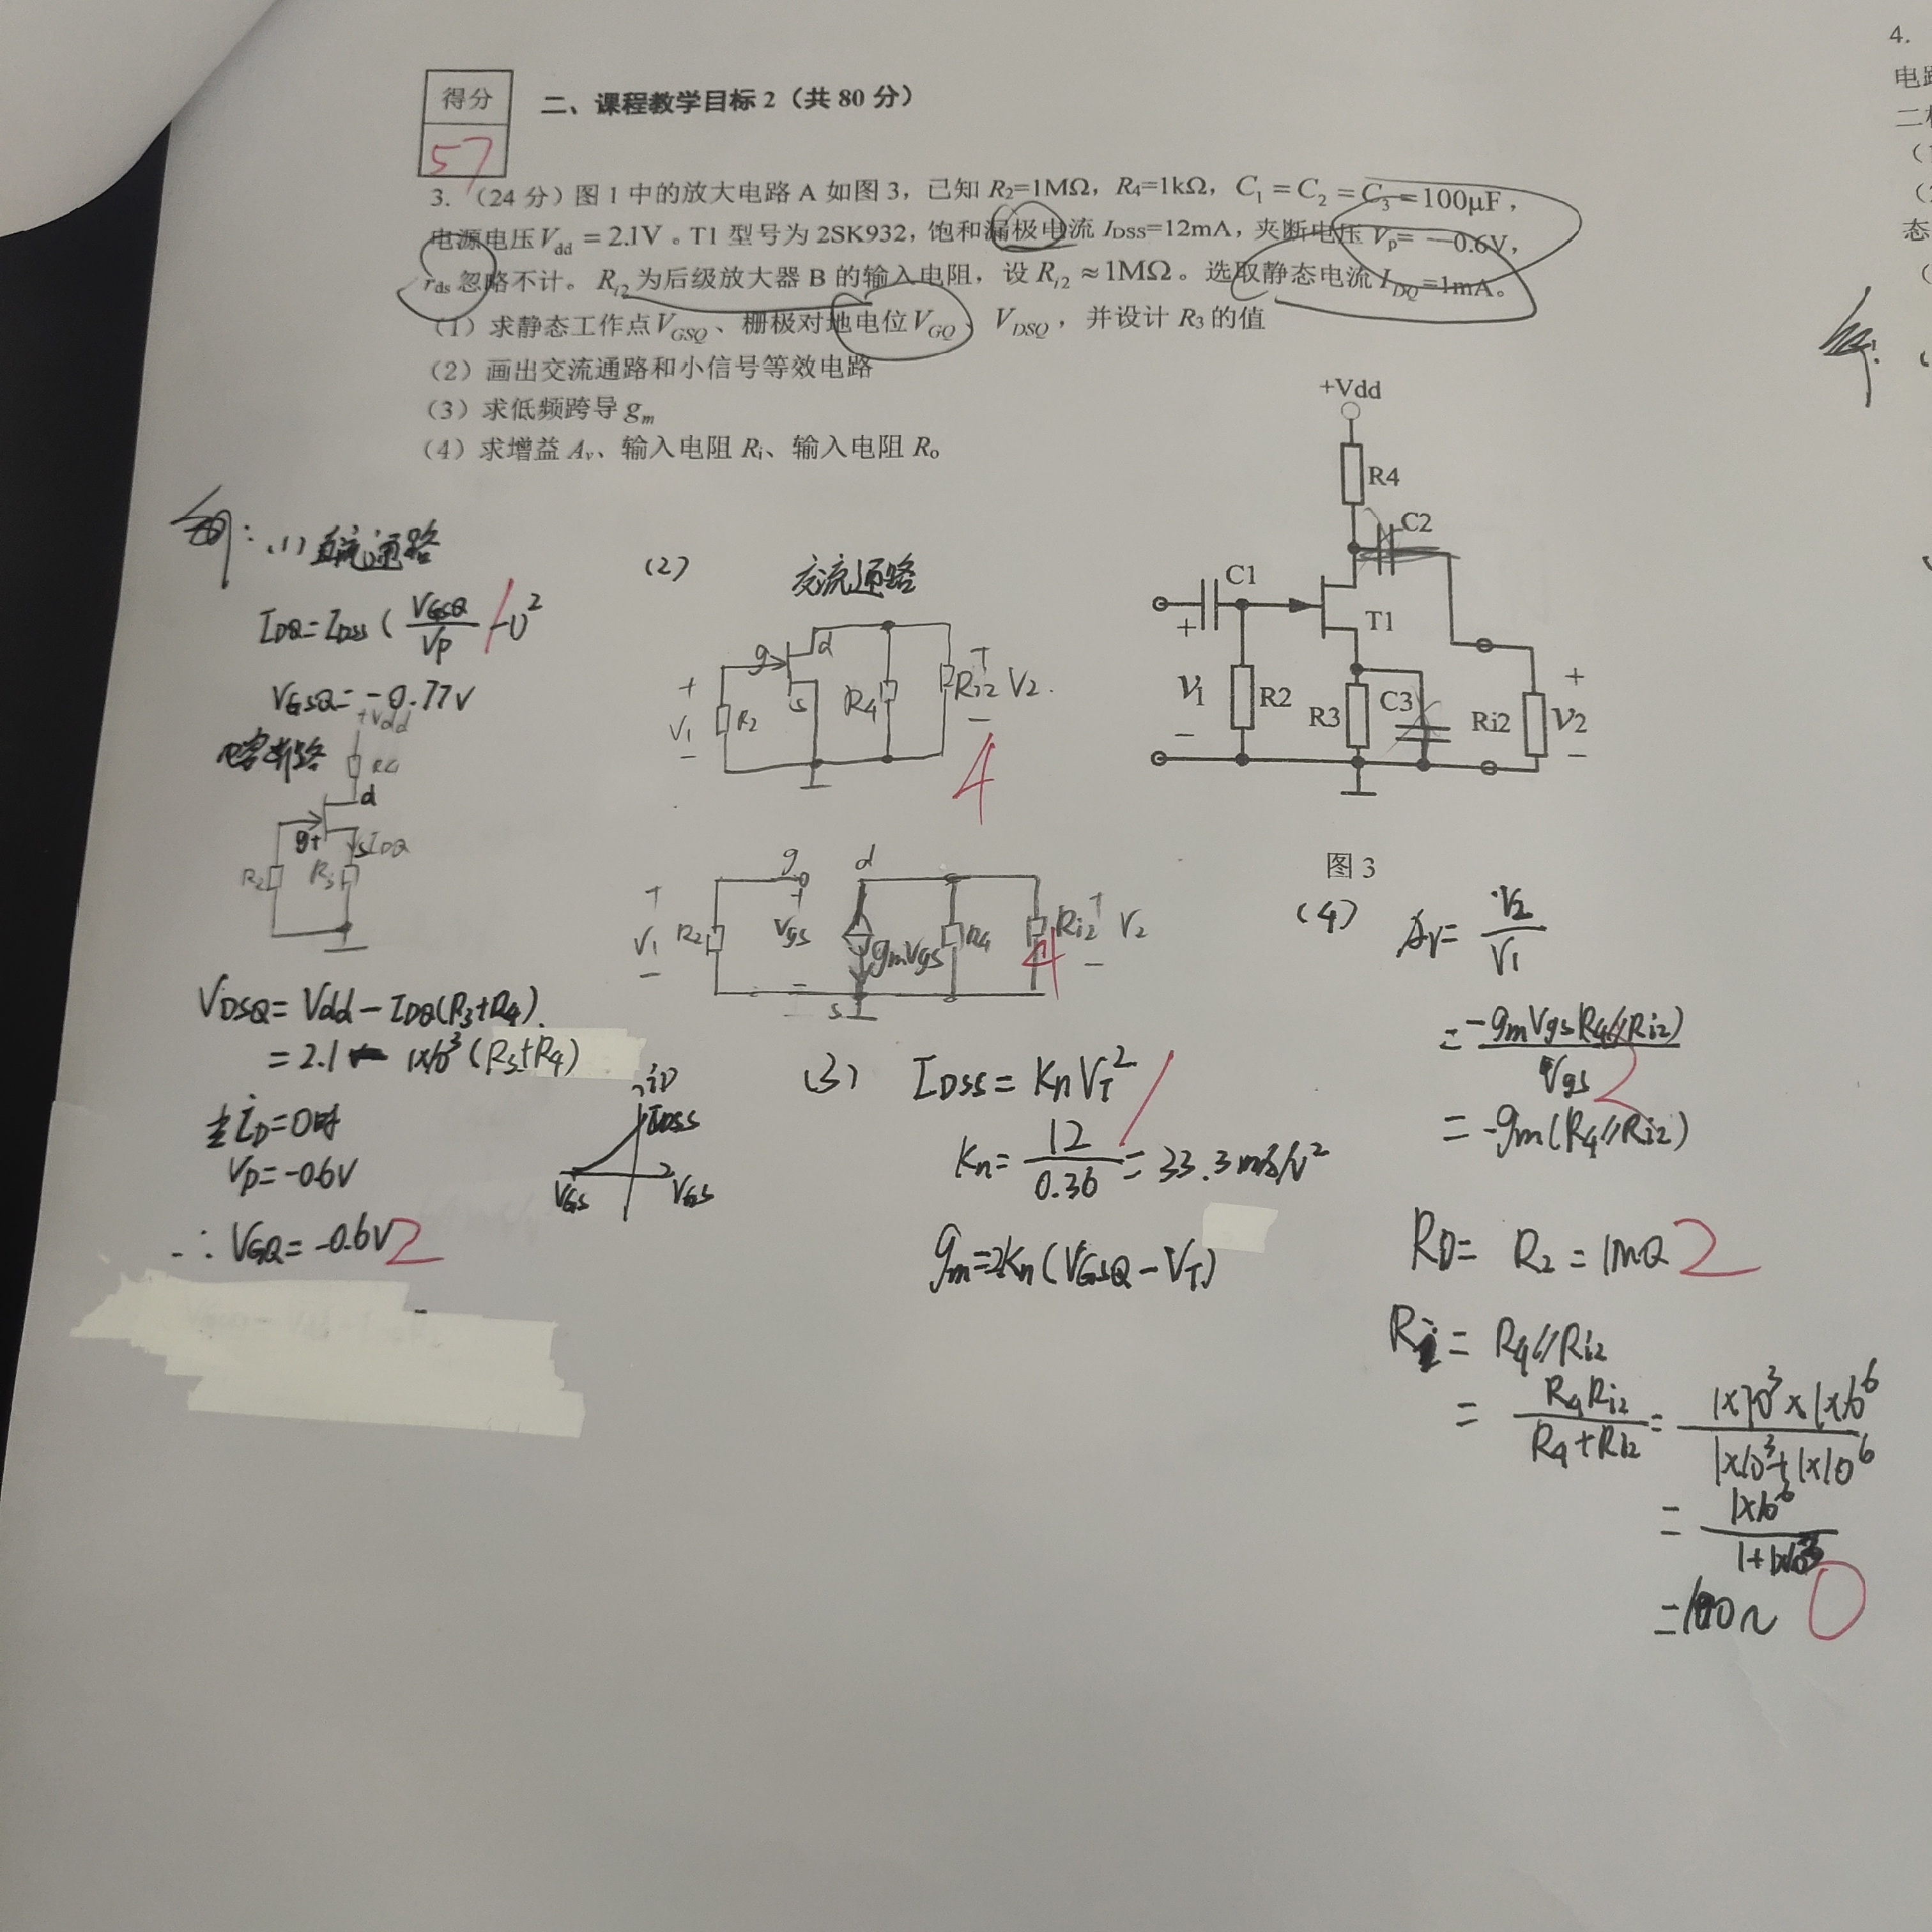 得分
57
二、课程教学目标 2（共 80 分）
3. （24 分）图 1 中的放大电路 A 如图 3，已知 R₂=1MΩ，R₄=1kΩ，C₁ = C₂ = C₃ = 100μF，
电源电压 V_dd = 2.1V。T1 型号为 2SK932，饱和漏极电流 I_DSS=12mA，夹断电压 V_p= −0.6V，
r_ds 忽略不计。R_i2 为后级放大器 B 的输入电阻，设 R_i2 ≈ 1MΩ。选取静态电流 I_DQ=1mA。
（1）求静态工作点 V_GSQ、栅极对地电位 V_GQ、V_DSQ，并设计 R₃ 的值
（2）画出交流通路和小信号等效电路
（3）求低频跨导 g_m
（4）求增益 A_v、输入电阻 R_i、输入电阻 R_o。
+Vdd
R4
C2
C1
T1
+
V₁
−
R2
R3
C3
Ri2
+
V₂
−
图 3
(1) 直流通路
I_DQ = I_DSS (V_GSQ/V_P − 1)²
V_GSQ = −0.77V
+Vdd
电容断路
R4
d
g+
s I_DQ
R2
R3
V_DSQ = Vdd − I_DQ(R3+R4)
= 2.1 − 1×10⁻³ (R3+R4)
当 i_D=0时
V_P=−0.6V
∴ V_GQ = −0.6V
2
i_D
I_DSS
V_GS
V_GS
(2)
交流通路
g
d
s
+
V₁
−
R2
R4
Ri2
+
V2
−
4
g
d
+
V₁
−
R2
+
Vgs
−
gmVgs
R4
Ri2
+
V2
−
s
4
(3) I_DSS = Kn V_T²
Kn = 12/0.36 = 33.3 mS/V²
gm = 2Kn (V_GSQ − V_T)
(4) Av = V2/V1
= −gmVgs R4//Ri2)/Vgs
2
= −gm(R4//Ri2)
R2 = 1MΩ
2
Ri = R4//Ri2
= R4Ri2/(R4+Ri2) = 1×10³×1×10⁶/(1×10³+1×10⁶)
= 1×10⁶/(1+1×10³)
0
4.
电路